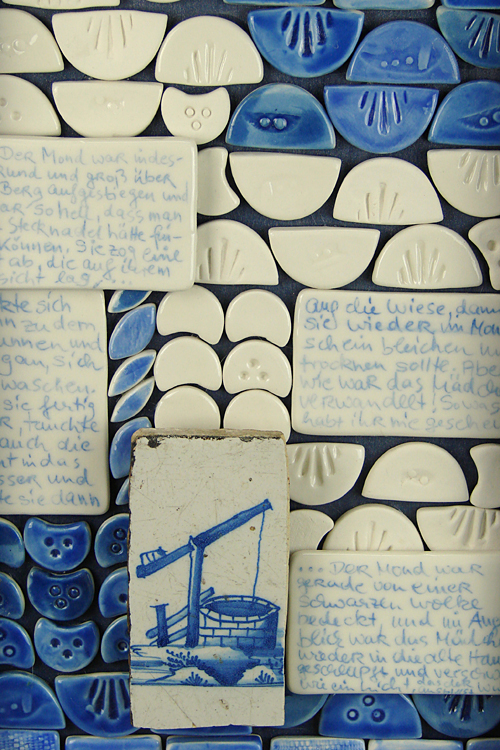 Der Mond war indes-
rund und groß über
Berg aufgestiegen und
so hell, dass man
Stecknadel hätte fin-
können. Sie zog eine
ab die auf ihrem
sicht lag &...
kte sich
n zu dem
unnen und
gan, sich
waschen.
sie fertig
r, tauchte
auch die
t in das
sser und
te sie dann
auf die Wiese, dam
sie wieder im Mon
schein bleichen u
trocknen sollte. Abe
wie war das Mädch
verwandelt! So was
habt ihr nie gesehen
... Der Mond war
gerade von einer
schwarzen Wolke
bedeckt, und im Aug
blick war das Mädch
wieder in die alte Hau
geschlüpft und
wie ein Licht,